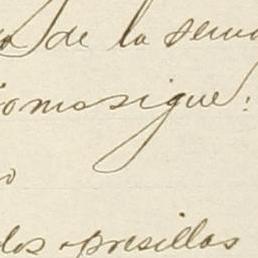 de la sema
como sigue:
o
dos presillas